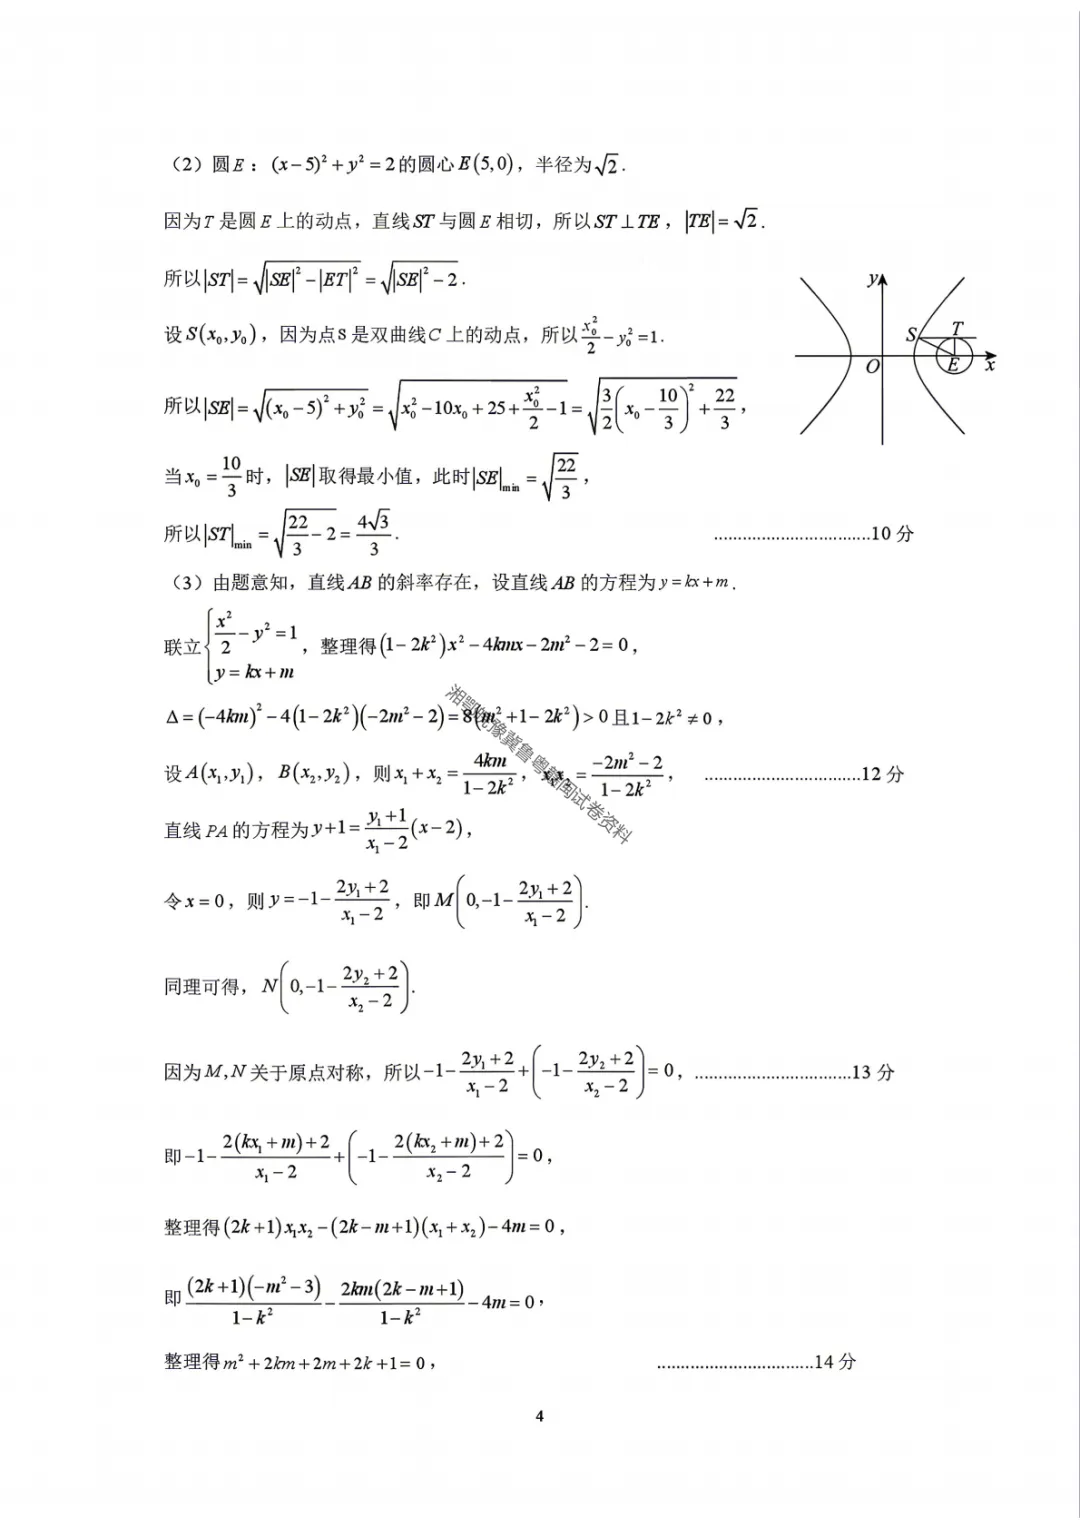 （2）圆E：(x−5)²+y²=2的圆心E(5,0)，半径为√2.
因为T是圆E上的动点，直线ST与圆E相切，所以ST⊥TE，|TE|=√2.
所以|ST|=√(|SE|²−|ET|²)=√(|SE|²−2).
设S(x₀,y₀)，因为点S是双曲线C上的动点，所以x₀²/2−y₀²=1.
所以|SE|=√((x₀−5)²+y₀²)=√(x₀²−10x₀+25+x₀²/2−1)=√(3/2(x₀−10/3)²+22/3)，
y
S T
O E x
当x₀=10/3时，|SE|取得最小值，此时|SE|min=√(22/3)，
所以|ST|min=√(22/3−2)=4√3/3. ................................10分
（3）由题意知，直线AB的斜率存在，设直线AB的方程为y=kx+m.
联立{x²/2−y²=1, y=kx+m，整理得(1−2k²)x²−4kmx−2m²−2=0，
Δ=(−4km)²−4(1−2k²)(−2m²−2)=8(m²+1−2k²)>0且1−2k²≠0，
设A(x₁,y₁)，B(x₂,y₂)，则x₁+x₂=4km/(1−2k²)，x₁x₂=(−2m²−2)/(1−2k²)， ................................12分
直线PA的方程为y+1=(y₁+1)/(x₁−2)(x−2)，
令x=0，则y=−1−(2y₁+2)/(x₁−2)，即M(0,−1−(2y₁+2)/(x₁−2)).
同理可得，N(0,−1−(2y₂+2)/(x₂−2)).
因为M,N关于原点对称，所以−1−(2y₁+2)/(x₁−2)+(−1−(2y₂+2)/(x₂−2))=0，................................13分
即−1−(2(kx₁+m)+2)/(x₁−2)+(−1−(2(kx₂+m)+2)/(x₂−2))=0，
整理得(2k+1)x₁x₂−(2k−m+1)(x₁+x₂)−4m=0，
即(2k+1)(−m²−3)/(1−k²)−2km(2k−m+1)/(1−k²)−4m=0，
整理得m²+2km+2m+2k+1=0， ................................14分
4